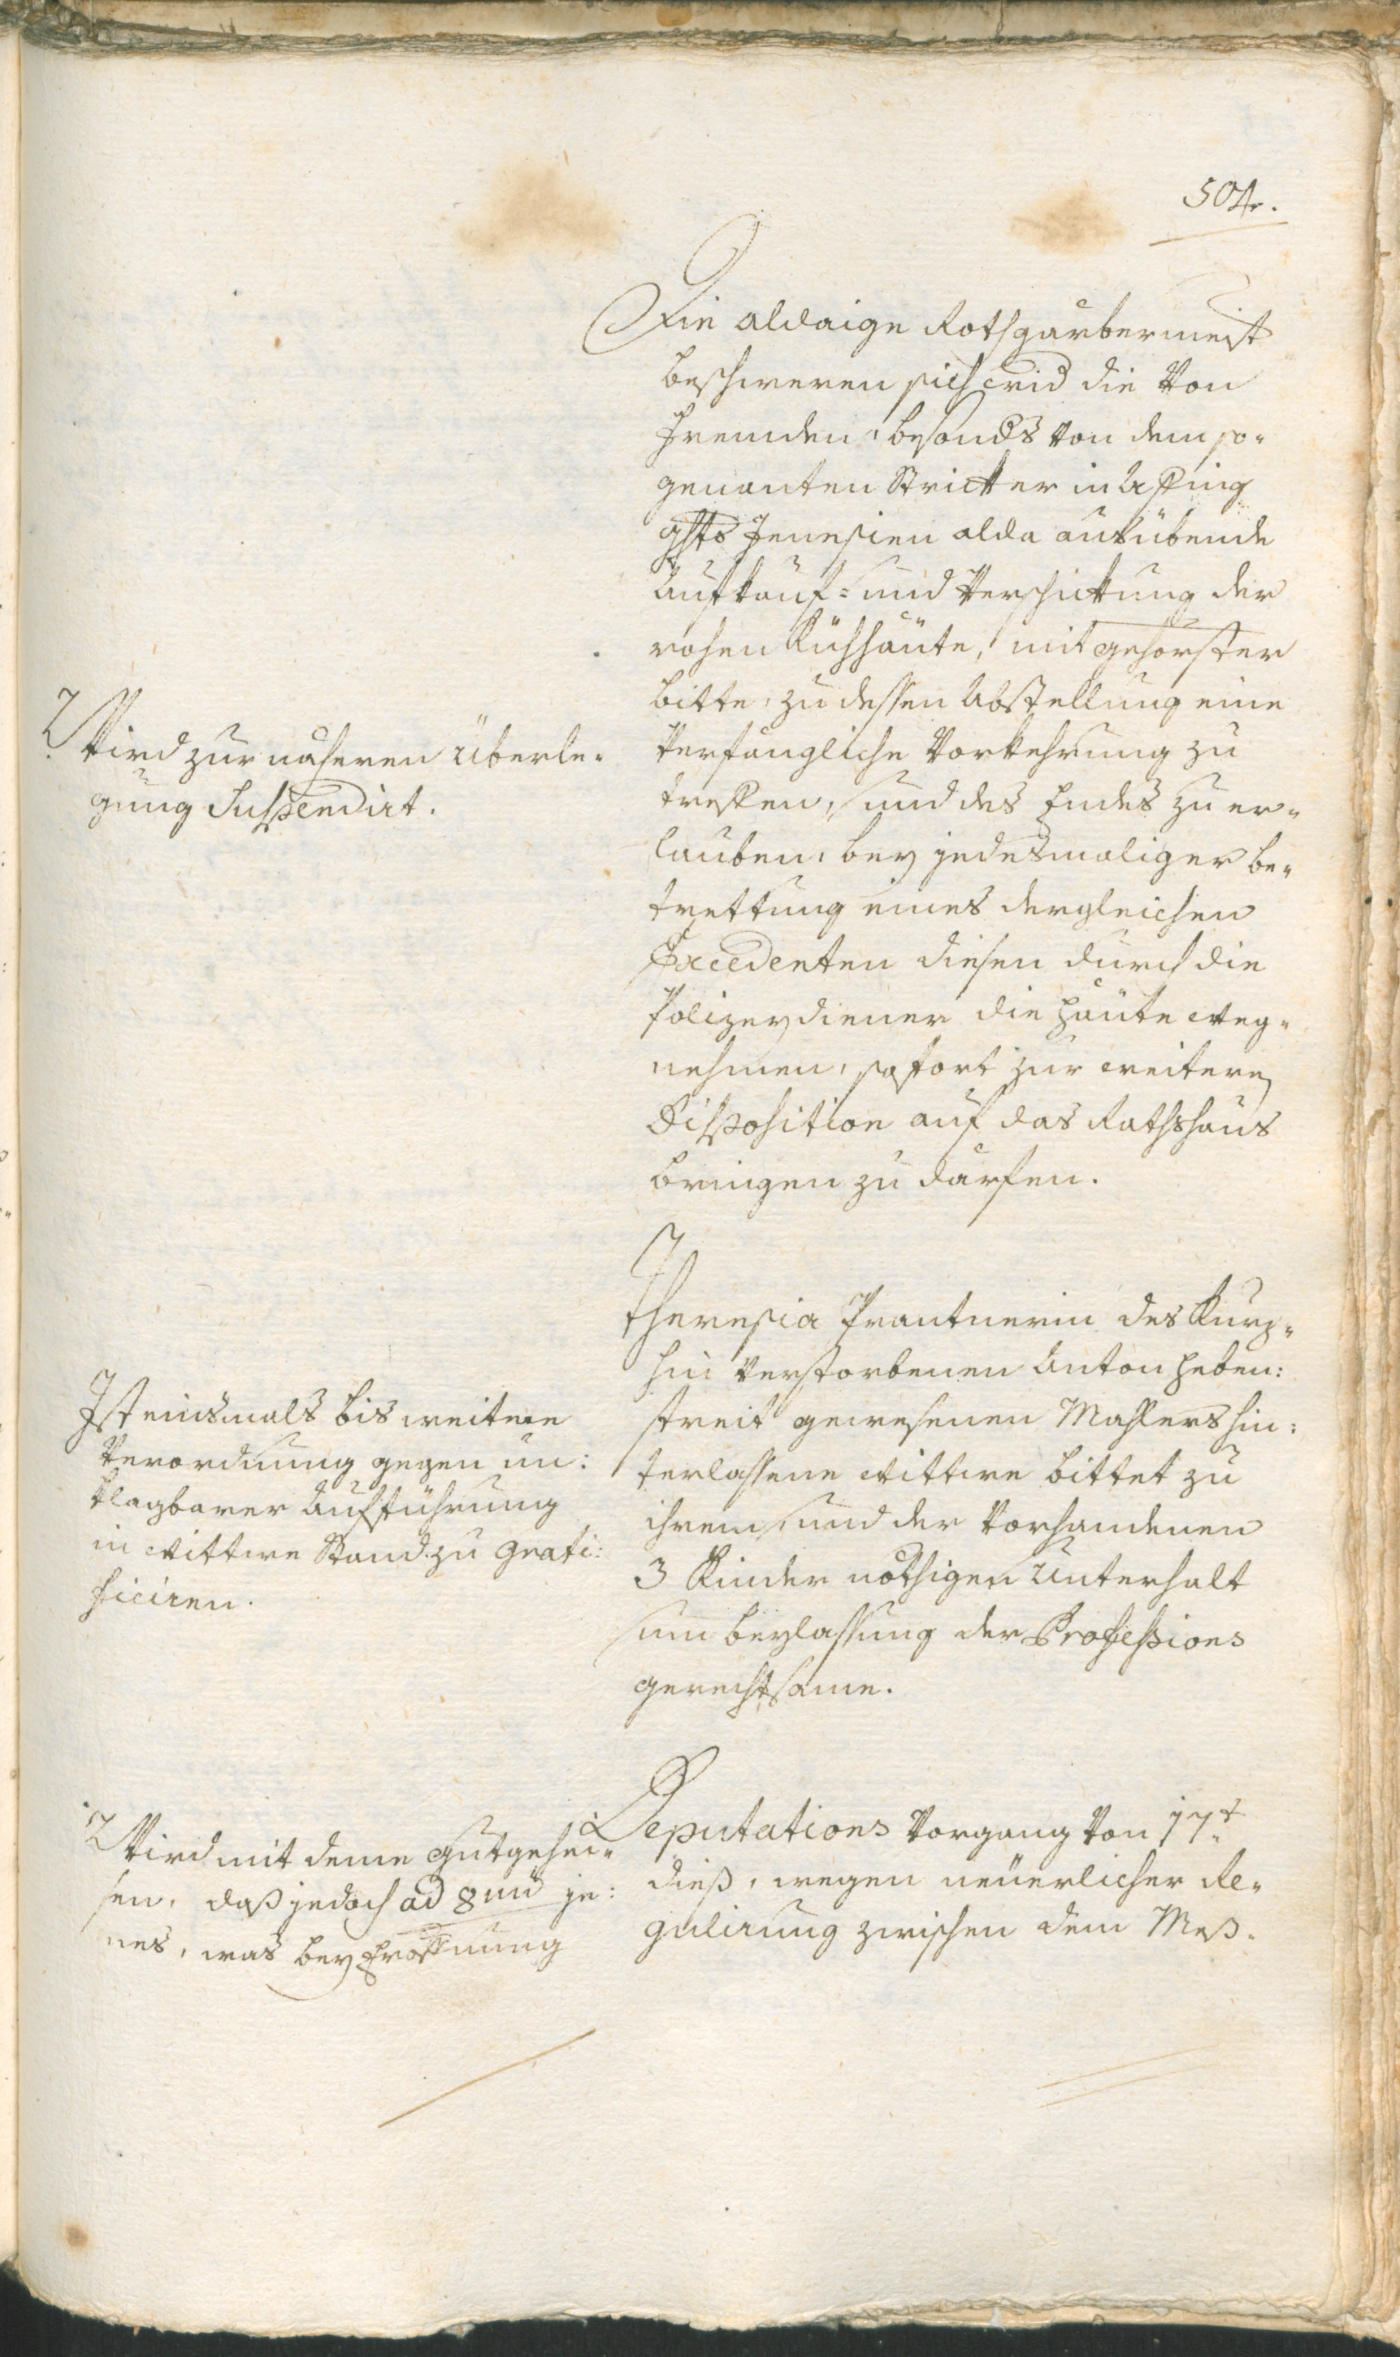 504.
Die aldaige Rothgärbermeist
beschweren sich wid die von
Fremden, besonds von dem so-
genanten Stricker in Affing
ghts Jenesien alda ausübende
Aufkauf- und Verschickung der
rohen Kühhäute, mit gehorster
bitte, zu dessen Abstellung eine
verfängliche Vorkehrung zu
treffen, und des Endes zu er-
lauben, bey jedesmaliger be-
trettung eines dergleichen
Excedenten diesen durch die
Polizeydiener die Häute weg-
nehmen, sofort zur weitern
Disposition auf das Rathshaus
bringen zu därfen.
Wird zur näheren Überle-
gung Suspendirt.
Theresia Prantnerin des Kurz-
hin verstorbenen Anton Heben:
streit gewesenen Mahlers hin:
terlassene Wittwe bittet zu
ihrem, und der vorhandenen
3 Kinder nöthigen Unterhalt
um beylassung der Professions
gerechtsame.
Ist einsmals bis weitere
Verordnung gegen un:
klagbarer Aufführung
in Wittwe Stand zu Grati:
ficiren.
Deputations Vorgang von 17t
dieß, wegen neüerlicher Re-
gulirung zwischen dem Meß-
Wird mit deme gutgehei-
sen, daß jedoch ad 8um je:
nes, was bey Eröffnung